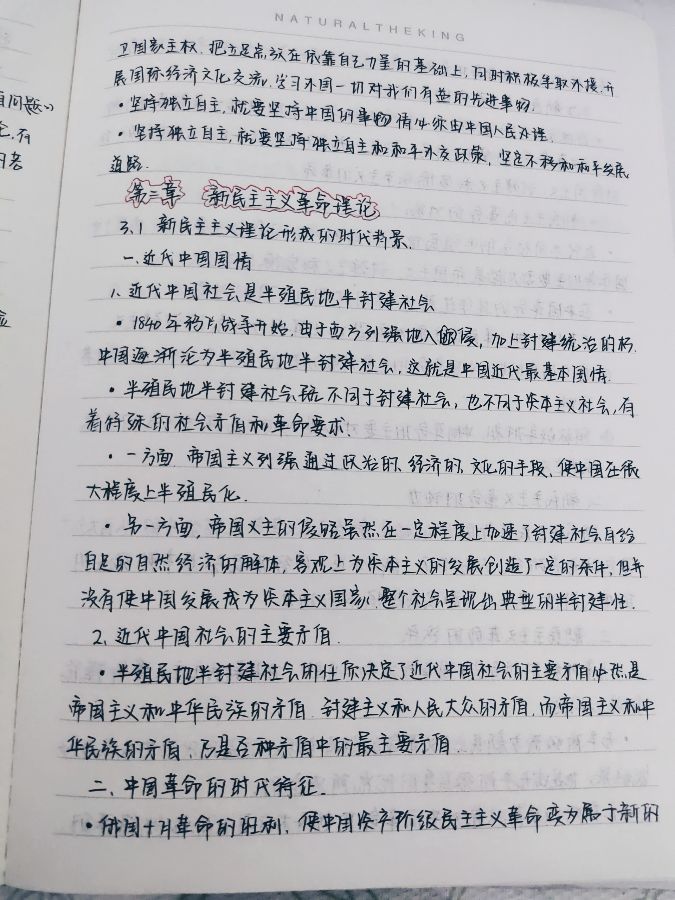 NATURALTHEKING
卫国家主权,把立足点放在依靠自己力量的基础上,同时积极争取外援,开
展国际经济文化交流,学习外国一切对我们有益的先进事物.
·坚持独立自主,就要坚持中国的事物情必须由中国人民处理.
·坚持独立自主,就要坚持独立自主和和平外交政策,坚定不移和和平发展
道路.
第三章 新民主主义革命理论
3.1 新民主主义理论形成的时代背景.
一.近代中国国情
1.近代中国社会是半殖民地半封建社会
·1840年鸦片战争开始,由于西方列强地入侵,加上封建统治的朽.
中国逐渐沦为半殖民地半封建社会,这就是中国近代最基本国情.
·半殖民地半封建社会既不同于封建社会,也不同于资本主义社会,有
着特殊的社会矛盾和革命要求.
·一方面.帝国主义列强通过政治的、经济的、文化的手段,使中国在很
大程度上半殖民化.
·另一方面,帝国义主的侵略虽然在一定程度上加速了封建社会自给
自足的自然经济的解体,客观上为资本主义的发展创造了一定的条件,但并
没有使中国发展成为资本主义国家.整个社会呈现出典型的半封建性.
2.近代中国社会的主要矛盾.
·半殖民地半封建社会的性质决定了近代中国社会的主要矛盾必然是
帝国主义和中华民族的矛盾.封建主义和人民大众的矛盾,而帝国主义和中
华民族的矛盾,乃是各种矛盾中的最主要矛盾.
二.中国革命的时代特征.
·俄国十月革命的胜利,使中国资产阶级民主主义革命变为属于新的